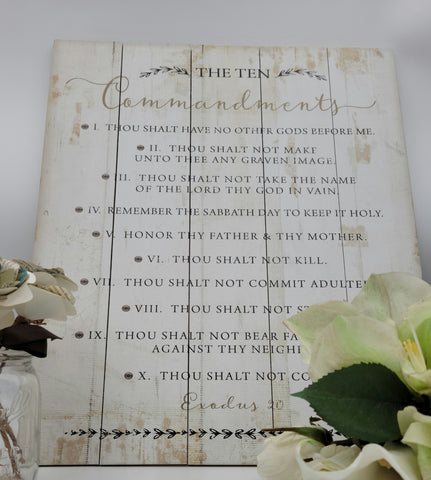 THE TEN
Commandments
I. THOU SHALT HAVE NO OTHER GODS BEFORE ME.
II. THOU SHALT NOT MAKE
UNTO THEE ANY GRAVEN IMAGE.
III. THOU SHALT NOT TAKE THE NAME
OF THE LORD THY GOD IN VAIN.
IV. REMEMBER THE SABBATH DAY TO KEEP IT HOLY.
V. HONOR THY FATHER & THY MOTHER.
VI. THOU SHALT NOT KILL.
VII. THOU SHALT NOT COMMIT
VIII. THOU SHALT NOT
IX. THOU SHALT NOT BEAR
AGAINST THY
X. THOU SHALT NOT
Exodus 20